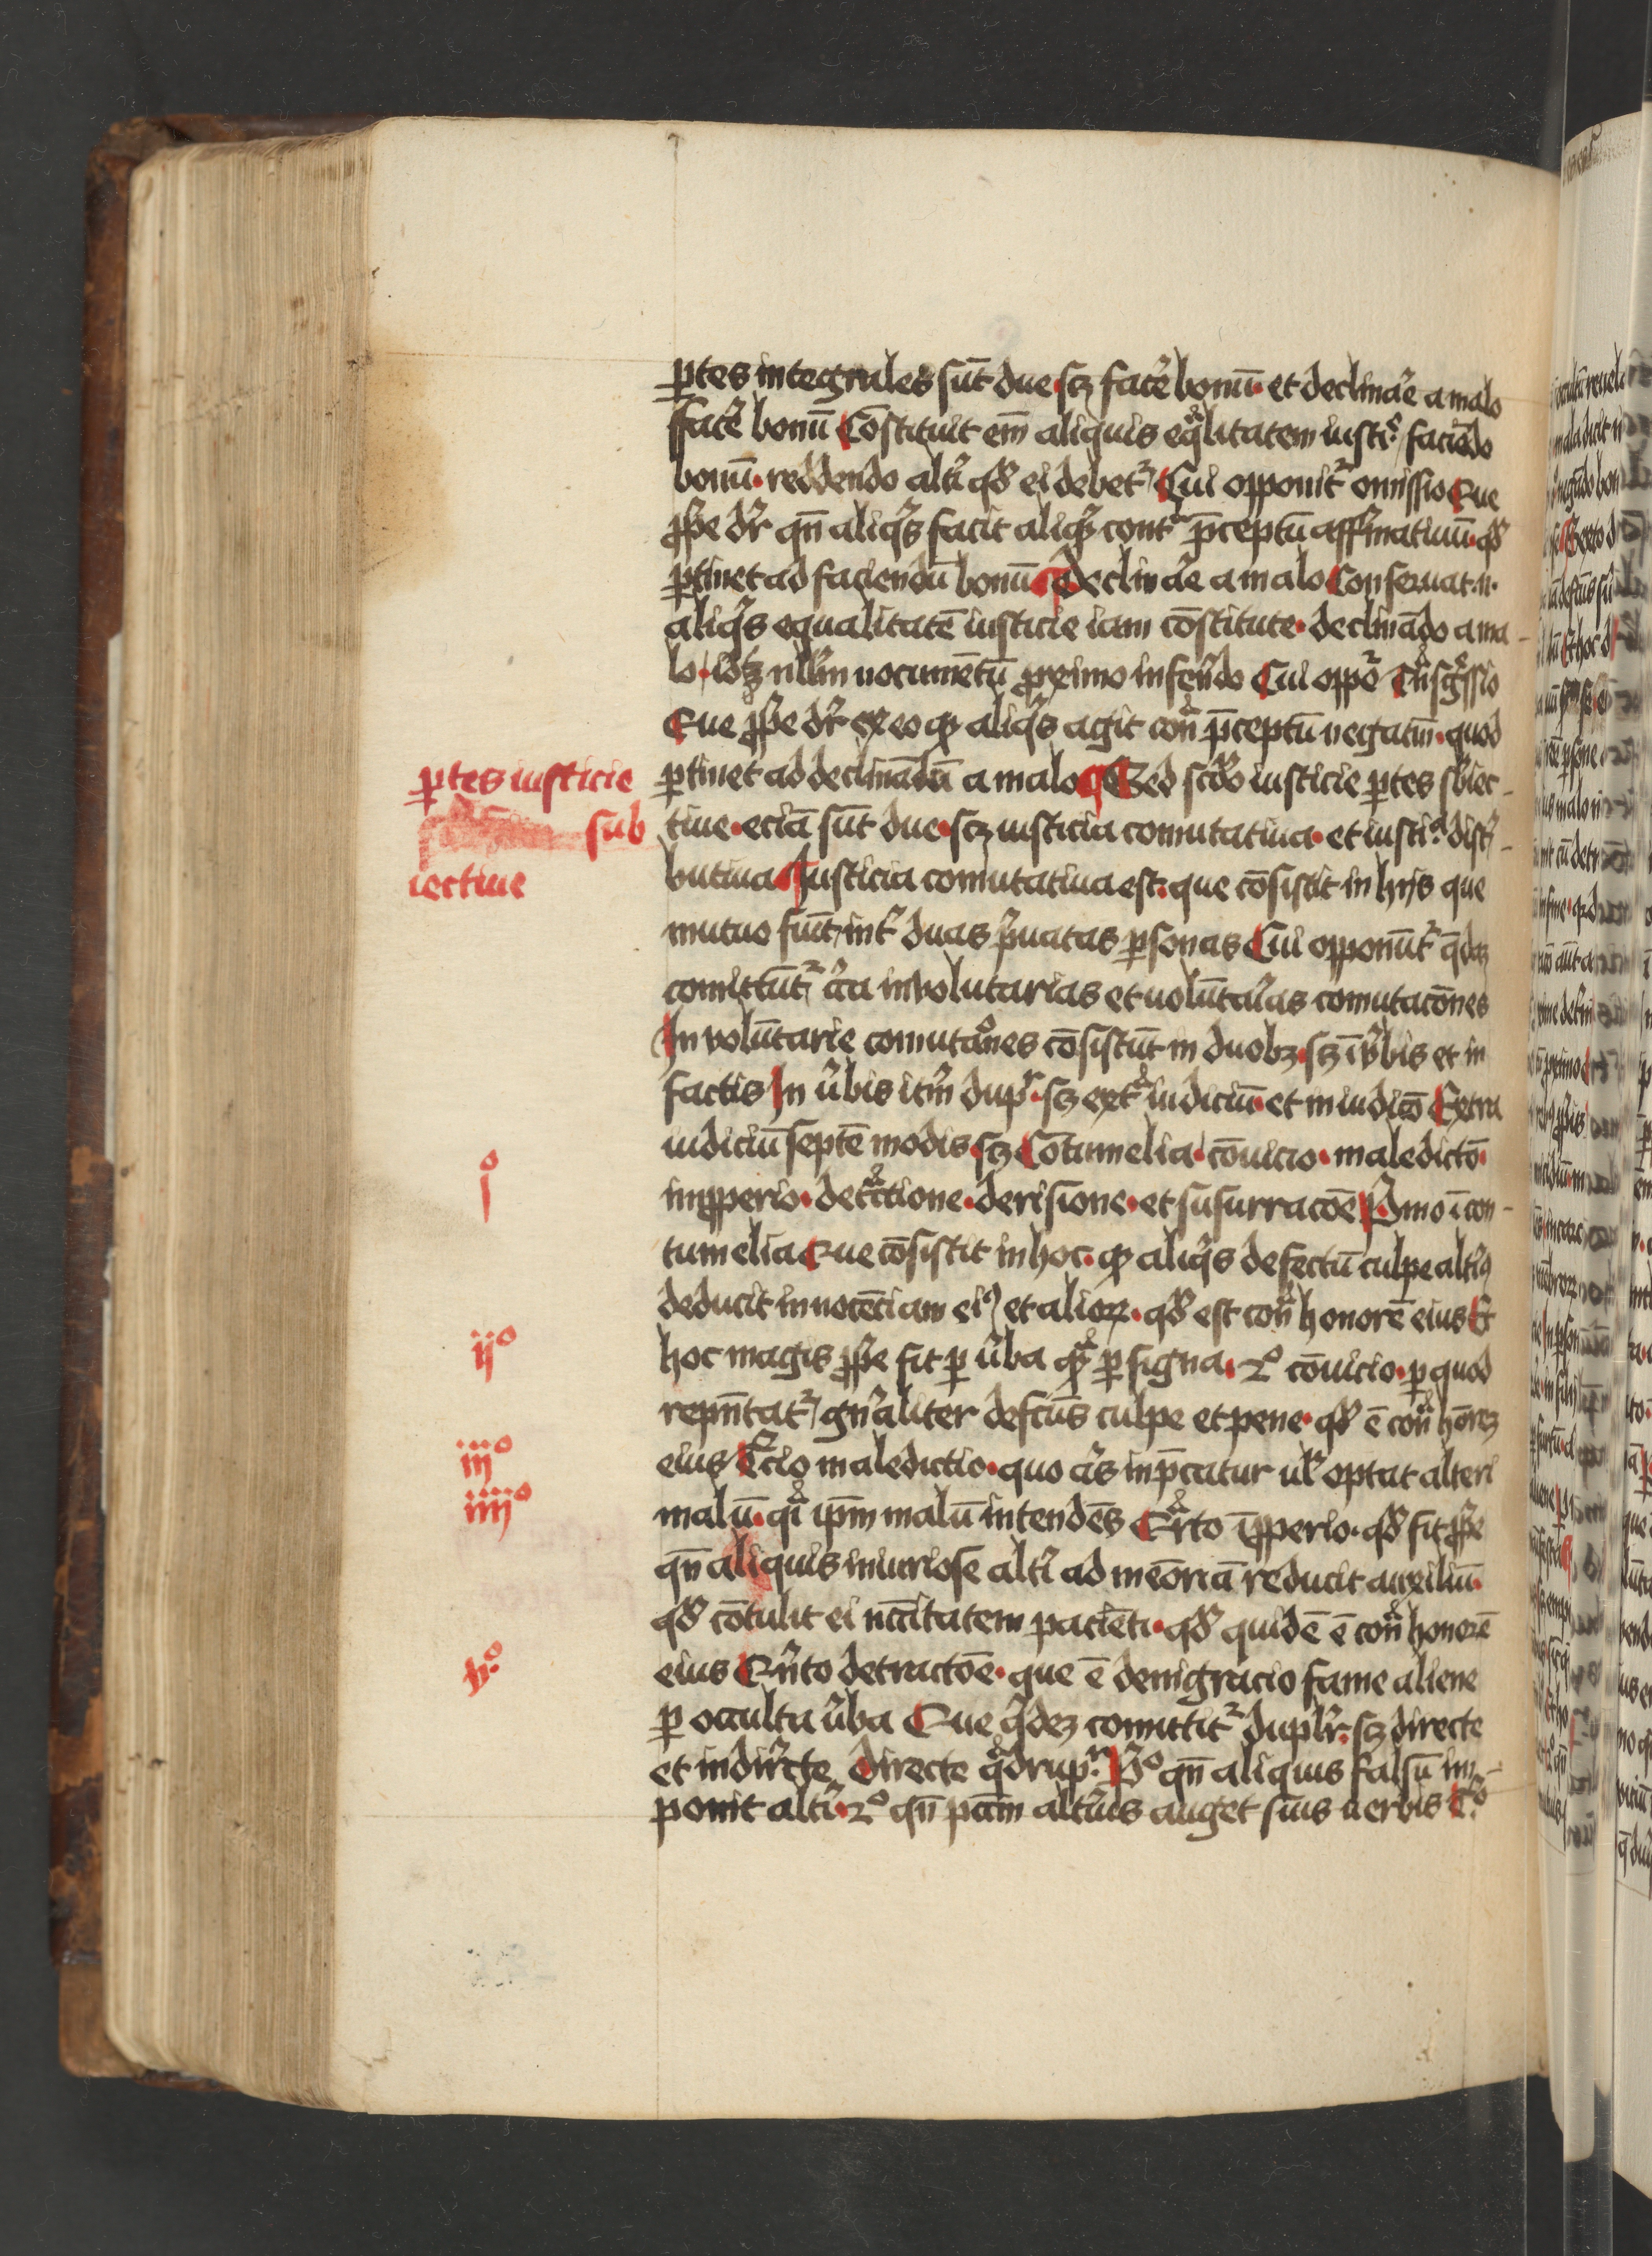 ꝑtes integrales sūt due · scꝫ facẽ bonū · et declinaẽ a malo
ffacẽ bonū Cōstituit em̄ aliquis eqͣlitatem iustiͤ / faciēdo
bonū · reddendo altĩ qđ ei debetᷣ Cui opponitᷣ omissio Que
ꝓpͥe dr̄ qn̄ aliqͥs facit aliqͥd contͣ p̄ceptū affirmatiuū · qđ
ꝑtinet ad faciendū bonū ¶ Declinaẽ a malo Conseruat · n ·
aliqͥs equalitatē iusticie iam cōstitute · declinādo a ma-
lo · nullūm nocumētū ꝓximo inferendo Cui oppoᷣ tn̄sgͤssio
Que ꝓpͥe dr̄ ex eo ꝙ aliqͥs agit conͣ p̄ceptū negatm̄ · quod
ꝑtinet ad declinādū a malo ¶ Sed scđo iusticie ꝑtes sbiec-
tiue · eciā sūt due · scꝫ iusticia comutatiua · et iustiͣ distͥ-
butiua ¶ Iusticia comutatiua est · que cōsistit in hijs que
mutuo fiūt / intͣ duas pͥuatas ꝑsonas Cui opponūtᷣ q̄dā
comittūtᷣ cͥca involutarias et uolūtaͥas comutacōnes
In volūtarie comutaͦnes cōsistūt in duobꝫ · scꝫ ī v̄bis et in
factis In v̄bis itm̄ dupͬ · scꝫ extͣ iudiciū · et in iudicō Extra
iudiciū septē modis · scꝫ Cōtumelia · cōuicio · maledictō ·
imꝓperio · detͣctione · derisione · et susurracōe Pͥmo ī con-
tumelia Que cōsistit in hoc · ꝙ aliqͥs defectū culpe altĩꝰ
deducit in noticiam eiꝰ et alioꝝ · qđ est conͣ honorē eius Et
hoc magis ꝓpͥe fit ꝑ v̄ba qͣꝫ ꝑ signa · 2º cōuicio · ꝑ quod
rep̄ntatᷣ / gn̄aliter defcūs culpe et pene · qđ ē conͣ honorē
eius Tͤcio maledictio · quo qͥs inp̄catur ul̄ optat alteri
malū · qͥ ip̄m malū intendēs Qͣrto īꝓperio · qđ fit ꝓpͥe
qn̄ aliquis iniuriose altĩ ad meōriā reducit auxiliū ·
qđ cōtulit ei nccītatem pacienti · qđ quidē ē conͣ honorē
eius Qn̄to detractōe · que ē denigracio fame aliene
ꝑ occulta v̄ba Que qͥdeꝫ comittitᷣ duplr̄ · scꝫ directe
et indirecte Directe qͣdrupͬ · Pͥº qn̄ aliquis falsū im-
ponit altĩ · 2º qn̄ pcm̄ altĩus auget suis uerbis Tͦ
ꝑtes iusticie
sub
iectiue
iº
ijº
iijº
iiijº
vº